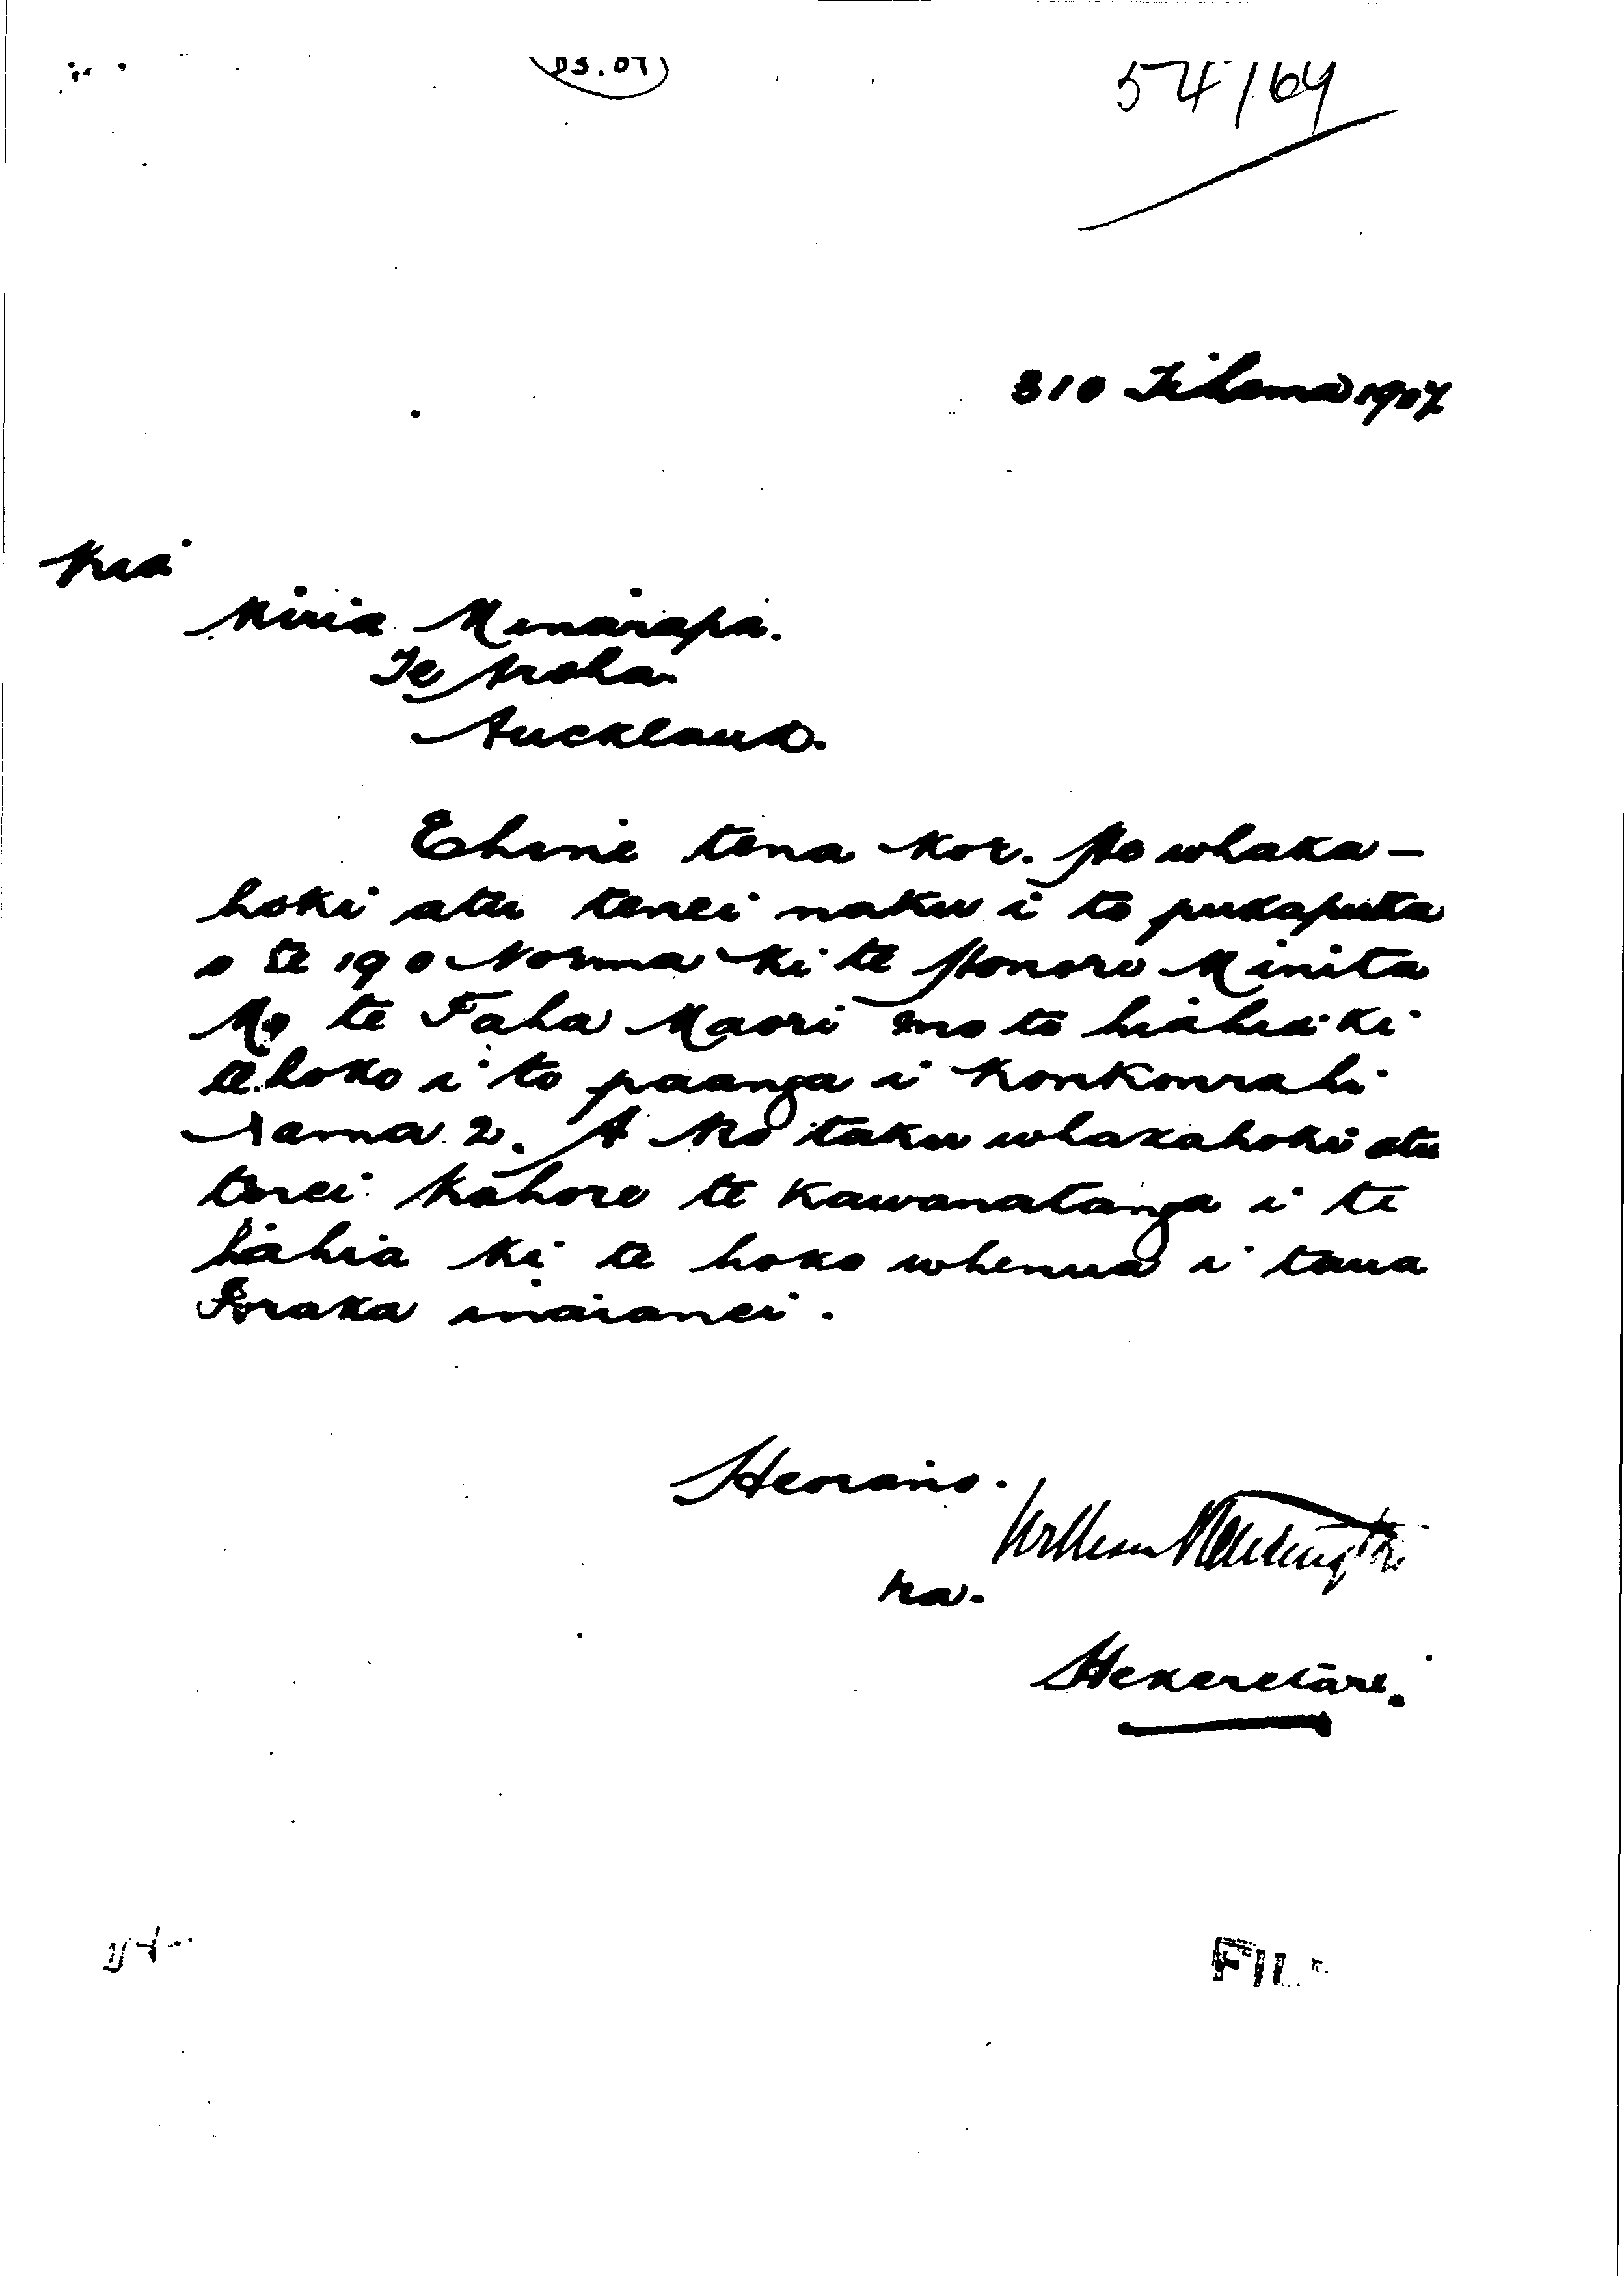 54/64
310 Tihema 1907
Kia
Miria Menarapa.
Te Aroha.
Auckland.
Ehine tena koe. He whaka-
hoki atu tenei naku i to pukapuka
o te 190 Noema ki te Honore Minita
Mo te Taha Maori mo to hiahia ki
te hoko i to paanga i Konkonrahi
Nama 2. A ko taku whakahoki atu
tenei: Kahore te Kawanatanga i te
hiahia ki te hoko whenua i taua
Poraka inaianei.
Heoiano.
na.
Hekeretare.